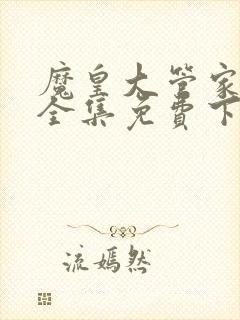 魔皇大管家
全集免费下
流嫣然